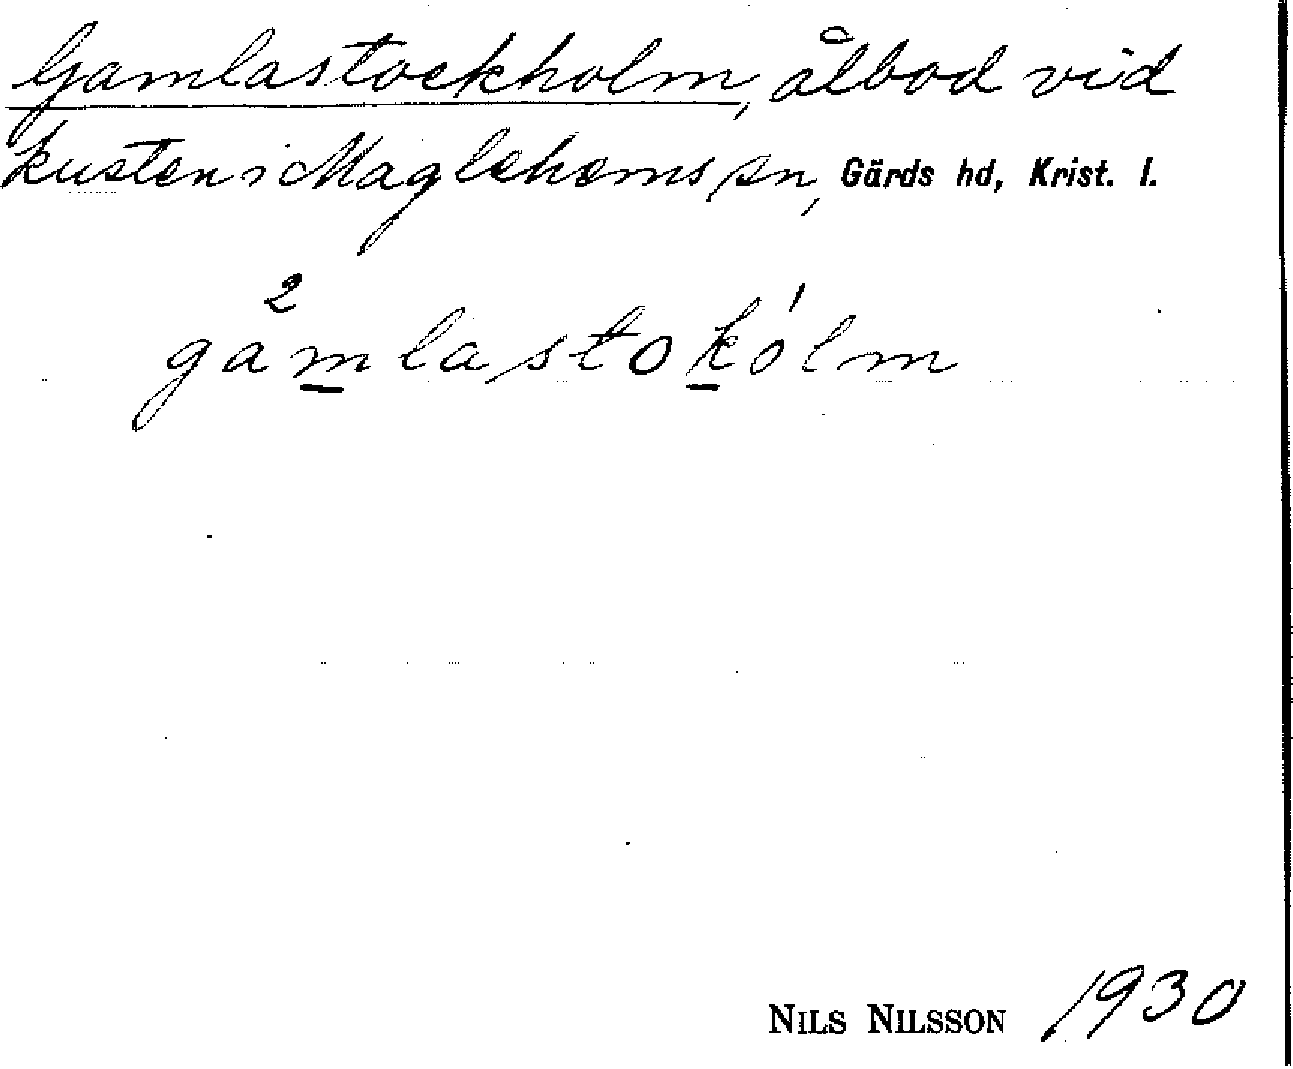 Gamlastockholm, ålbod vid
kusten i Maglehems sn, Gärds hd, Krist. l.
2 1
gamlastokolm
NILS NILSSON 1930